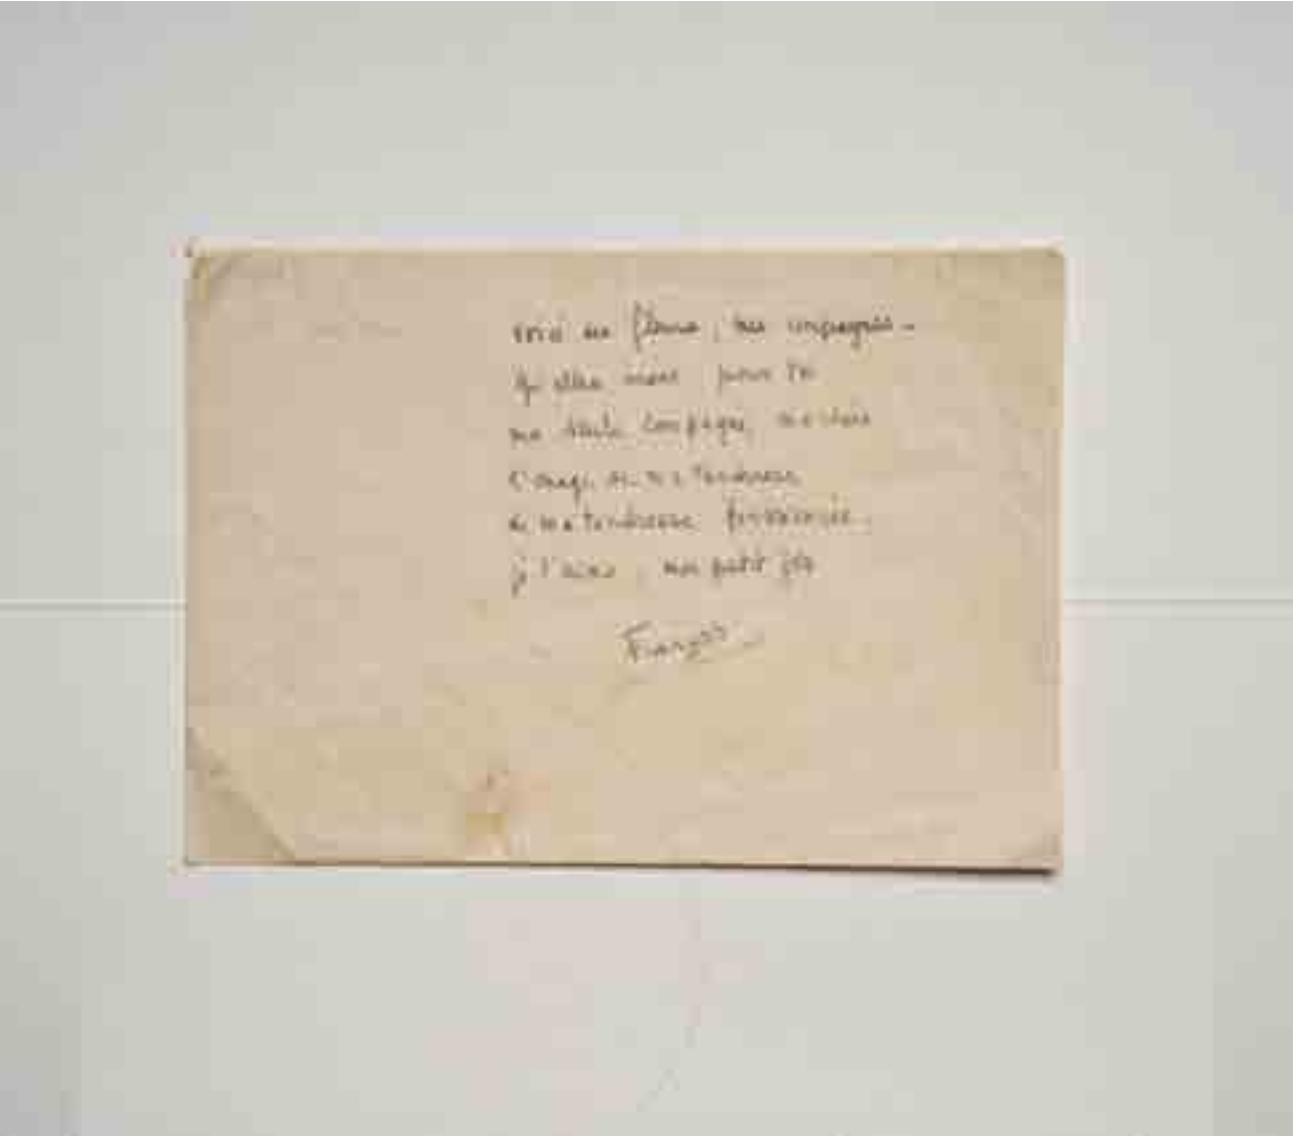 voici des fleurs, mes compagnes -
qu'elles soient pour toi
ma seule compagne,
l'image de ma tendresse
de ma tendresse passionnée.
je t'aime, mon petit
François